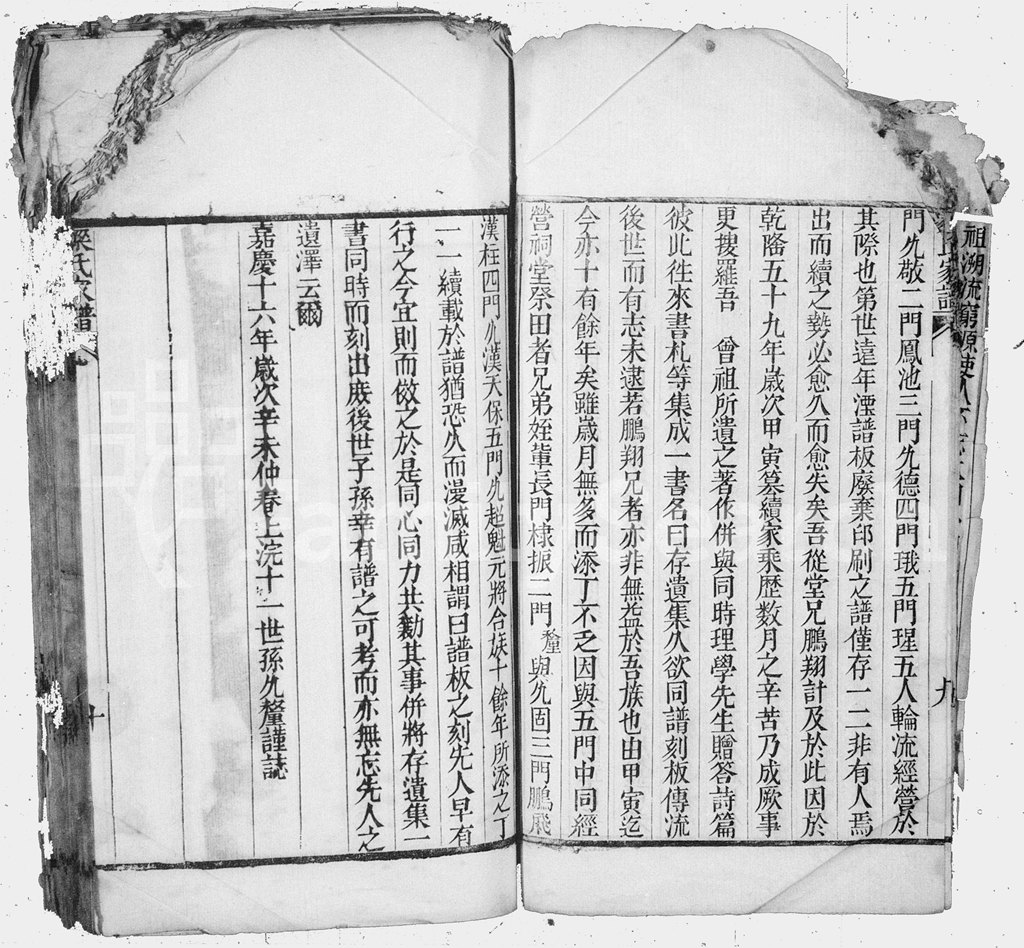 祖溯流窮源使
門允敬二門鳳池三門允德四門珴五門瑆五人輪流經營於
其際也第世遠年湮譜板廢棄印刷之譜僅存一二非有人焉
出而續之勢必愈久而愈失矣吾從堂兄鵬翔計及於此因於
乾隆五十九年歲次甲寅纂續家乘歷数月之辛苦乃成厥事
更搜羅吾 曾祖所遺之著作併與同時理學先生贈答詩篇
彼此往來書札等集成一書名曰存遺集久欲同譜刻板傳流
後世而有志未逮若鵬翔兄者亦非無益於吾族也由甲寅迄
今亦十有餘年矣雖歲月無多而添丁不乏因與五門中同經
營祠堂祭田者兄弟姪軰長門棣振二門釐與允固三門鵬飛
九
漢柱四門允漢天保五門允超魁元將合族十餘年所添之丁
一一續載於譜猶恐久而漫滅咸相謂曰譜板之刻先人早有
行之今宜則而倣之於是同心同力共勷其事併將存遺集一
書同時而刻出庶後世子孫幸有譜之可考而亦無忘先人之
遺澤云爾
嘉慶十六年歲次辛未仲春上浣十一世孫允釐謹誌
氏家譜
十